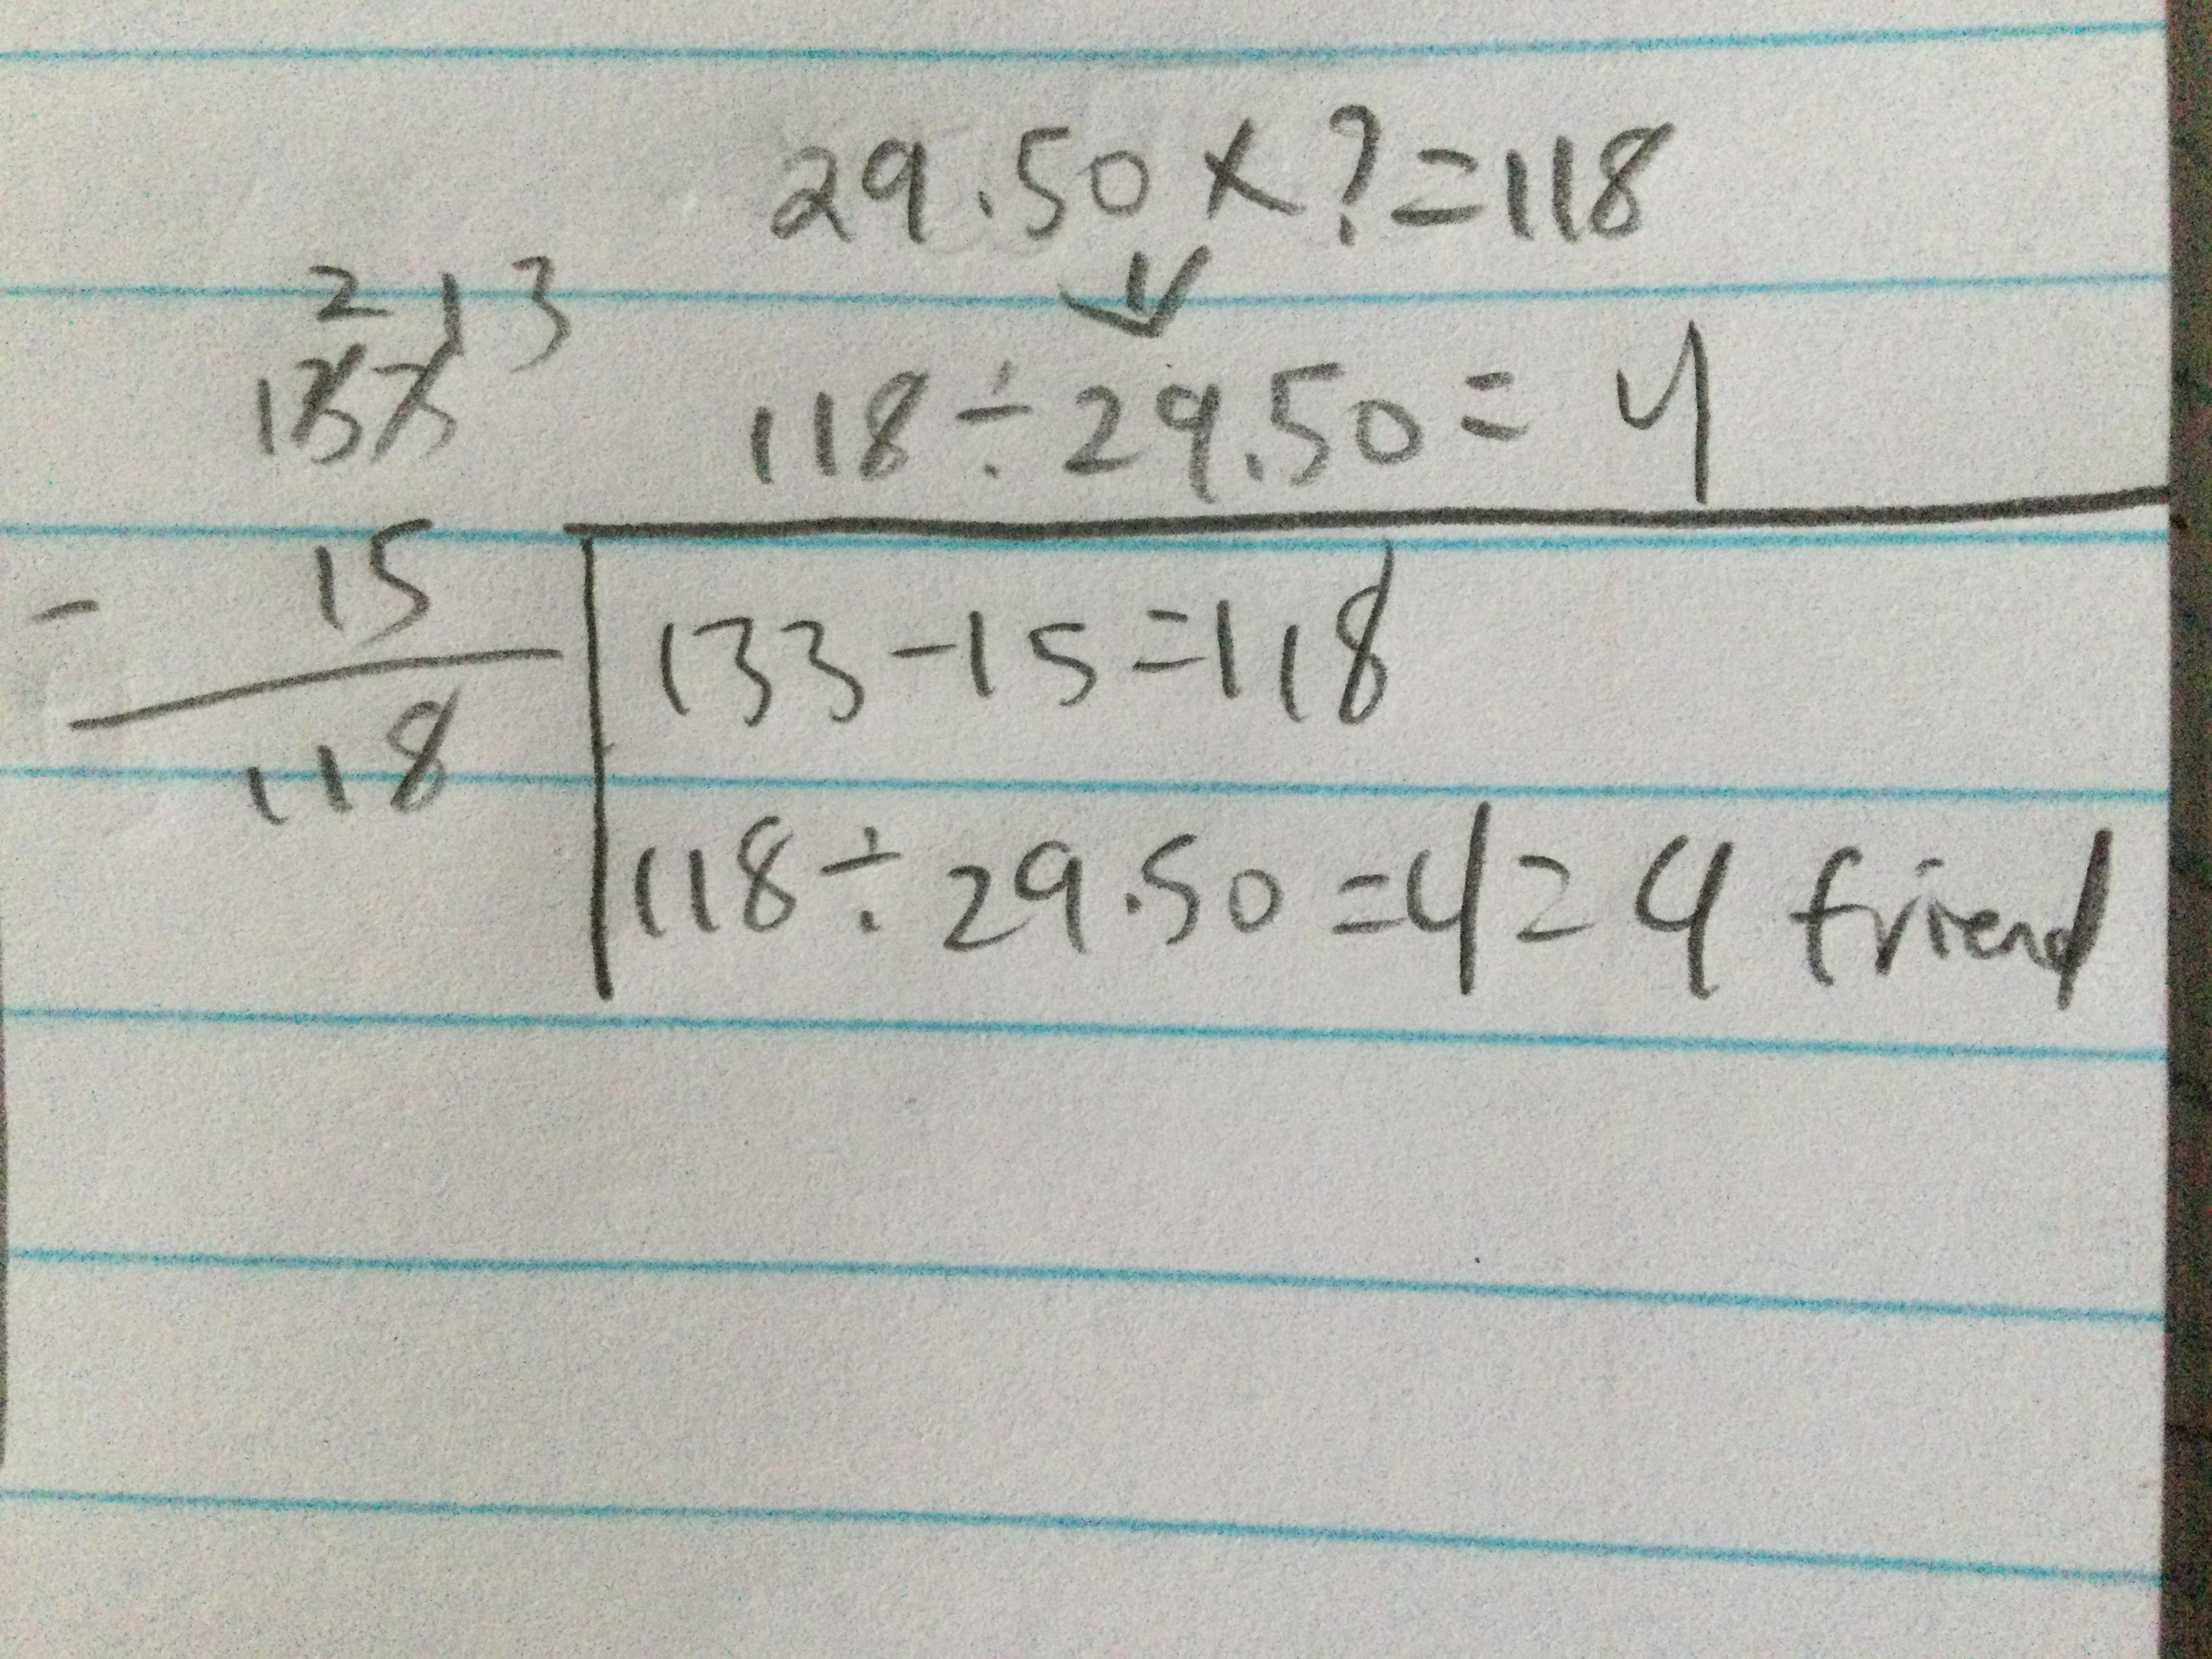 29.50 x ? = 118
118 ÷ 29.50 = 4
2 13
133
- 15
118
133 - 15 = 118
118 ÷ 29.50 = 4 = 4 friend